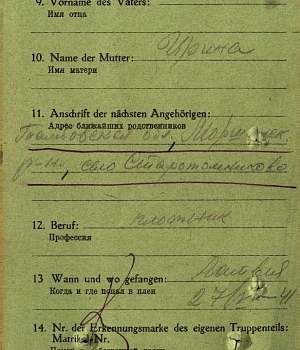 9. Vorname des Vaters:
Имя отца
10. Name der Mutter: Ирина
Имя матери
11. Anschrift der nächsten Angehörigen:
Адрес ближайших родственников
Тамбовская обл,
р-н, село Старотомниково
12. Beruf: плотник
Профессия
13 Wann und wo gefangen: Латвия
Когда и где попал в плен
14. Nr. der Erkennungsmarke des eigenen Truppenteils:
Matrikel-Nr.